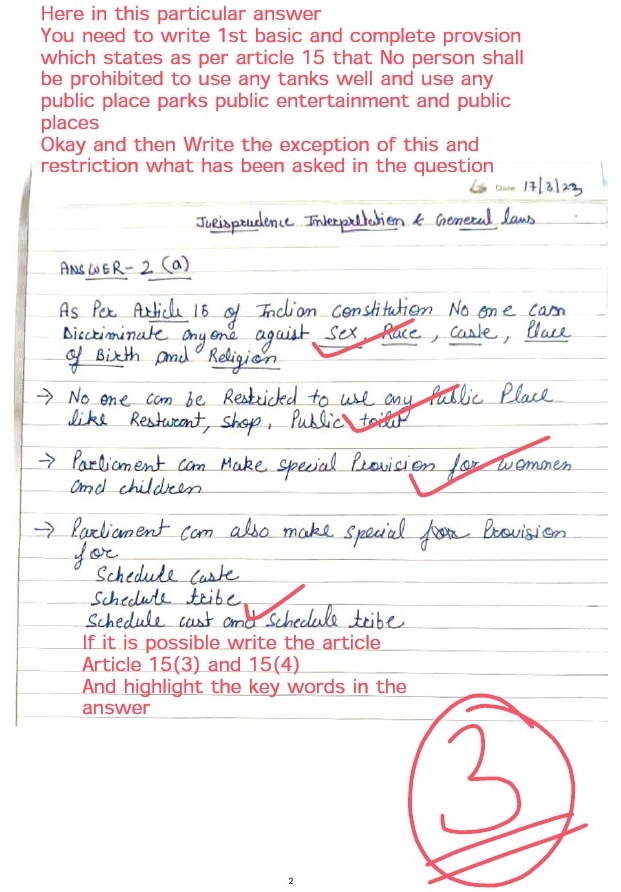 Here in this particular answer
You need to write 1st basic and complete provsion
which states as per article 15 that No person shall
be prohibited to use any tanks well and use any
public place parks public entertainment and public
places
Okay and then Write the exception of this and
restriction what has been asked in the question
Date 17/3/23
Jurisprudence Interpretation & General laws
ANSWER-2 (a)
As Per Article 15 of Indian constitution No one can
Discriminate anyone agaist Sex, Race, Caste, Place
of Birth and Religion
→ No one can be Restricted to use any Public Place
like Resturent, shop, Public toilet
→ Parliament can Make special Provision for womnen
and children
→ Parliament can also make special for Provision
for
Schedule Caste
Schedule tribe
Schedule cast and Schedule tribe
If it is possible write the article
Article 15(3) and 15(4)
And highlight the key words in the
answer
3
2